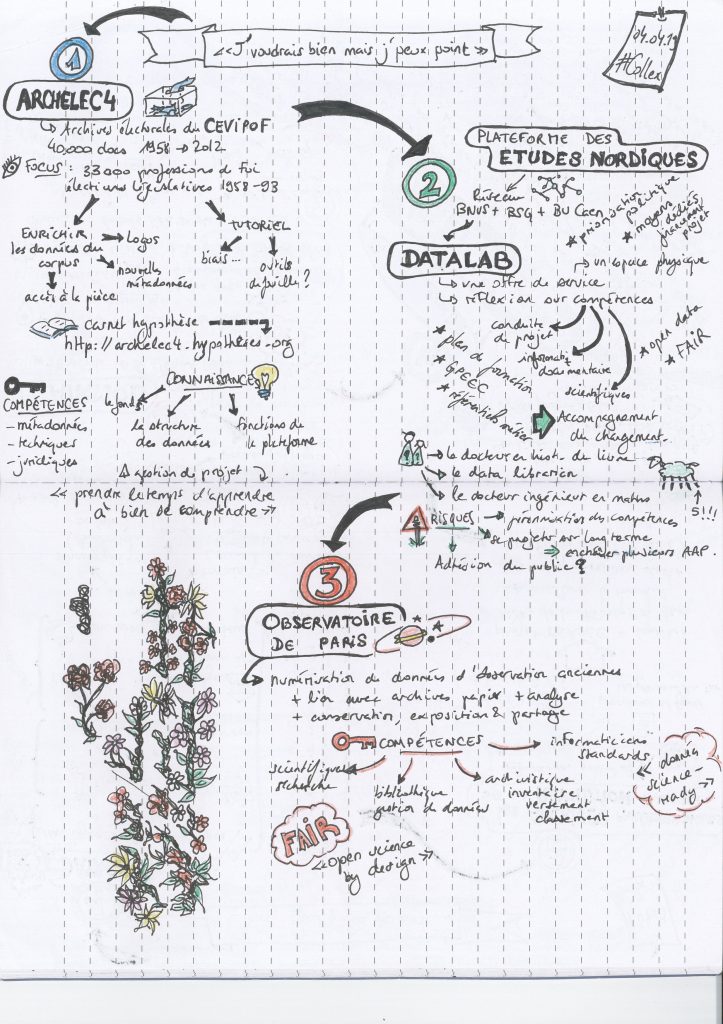 « J'voudrais bien mais j'peux point »
04.04.19
#Collex
1
ARCHELEC4
↳ Archives électorales du CEVIPOF
40,000 docs 1958 → 2012
FOCUS : 33000 professions de foi
élections législatives 1958-93
ENRICHIR
les données du
corpus
→ Logos
nouvelles
métadonnées
accès à la pièce
TUTORIEL
biais...
outils
de fouille ?
carnet hypothèse
http://archelec4.hypotheses.org
COMPÉTENCES
- métadonnées
- techniques
- juridiques
CONNAISSANCES
le fonds
la structure
des données
fonctions de
la plateforme
gestion de projet
« prendre le temps d'apprendre
à bien se comprendre »
2
PLATEFORME DES
ETUDES NORDIQUES
Réseau
BNUS + BSG + BU Caen
* priorisation
politique
* moyens
dédiés
financement
projet
→ un espace physique
DATALAB
↳ une offre de service
↳ réflexion sur compétences
conduite
de projet
informatique
documentaire
scientifiques
* open data
* FAIR
* plan de formation
* GPEEC
* référentiels métier
Accompagnement
du changement
le docteur en hist. du livre
le data librarian
le docteur ingénieur en maths
5!!!
RISQUES
→ pérennisation des compétences
se projeter sur long terme
⇒ enchaîner plusieurs AAP.
Adhésion du public ?
3
OBSERVATOIRE
DE PARIS
numérisation de données d'observation anciennes
+ lien avec archives papier + analyse
+ conservation, exposition & partage
COMPÉTENCES
informaticiens
standards
scientifiques
recherche
bibliothèque
gestion de données
archivistique
inventaire
versement
classement
« données
science-
ready »
FAIR
« open science
by design »